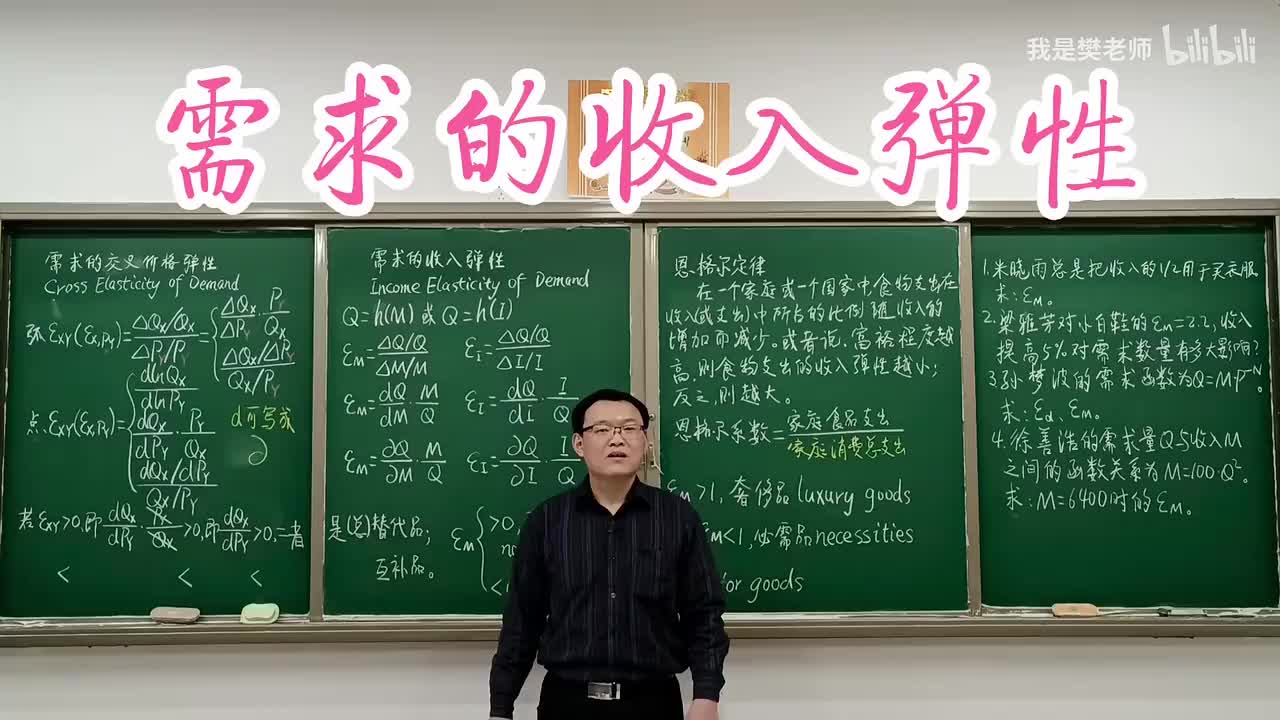 我是樊老师 bilibili
需求的收入弹性
需求的交叉价格弹性
Cross Elasticity of Demand
弧 εxy(εx,Py)=(ΔQx/Qx)/(ΔPy/Py)={ΔQx/ΔPy·Py/Qx
(ΔQx/ΔPy)/(Qx/Py)
点 εxy(εx,Py)={dlnQx/dlnPy
dQx/dPy·Py/Qx
(dQx/dPy)/(Qx/Py)
d可写成
∂
若εxy>0,即dQx/dPy·Py/Qx>0,即dQx/dPy>0,二者
是(总)替代品;
< < <
互补品。
需求的收入弹性
Income Elasticity of Demand
Q=h(M)或Q=h(I)
εM=(ΔQ/Q)/(ΔM/M) εI=(ΔQ/Q)/(ΔI/I)
εM=dQ/dM·M/Q εI=dQ/dI·I/Q
εM=∂Q/∂M·M/Q εI=∂Q/∂I·I/Q
εM{>0,
no
<
恩格尔定律
在一个家庭或一个国家中食物支出在
收入(或支出)中所占的比例随收入的
增加而减少。或者说,富裕程度越
高,则食物支出的收入弹性越小;
反之,则越大。
恩格尔系数=家庭食品支出/家庭消费总支出
εM>1,奢侈品luxury goods
M<1,必需品necessities
or goods
1.朱晓雨总是把收入的1/2用于买衣服
求:εM。
2.梁雅芳对小白鞋的εM=2.2,收入
提高5%对需求数量有多大影响?
3.孙梦波的需求函数为Q=MP^-N。
求:εd、εM。
4.徐善浩的需求量Q与收入M
之间的函数关系为M=100·Q²。
求:M=6400时的εM。